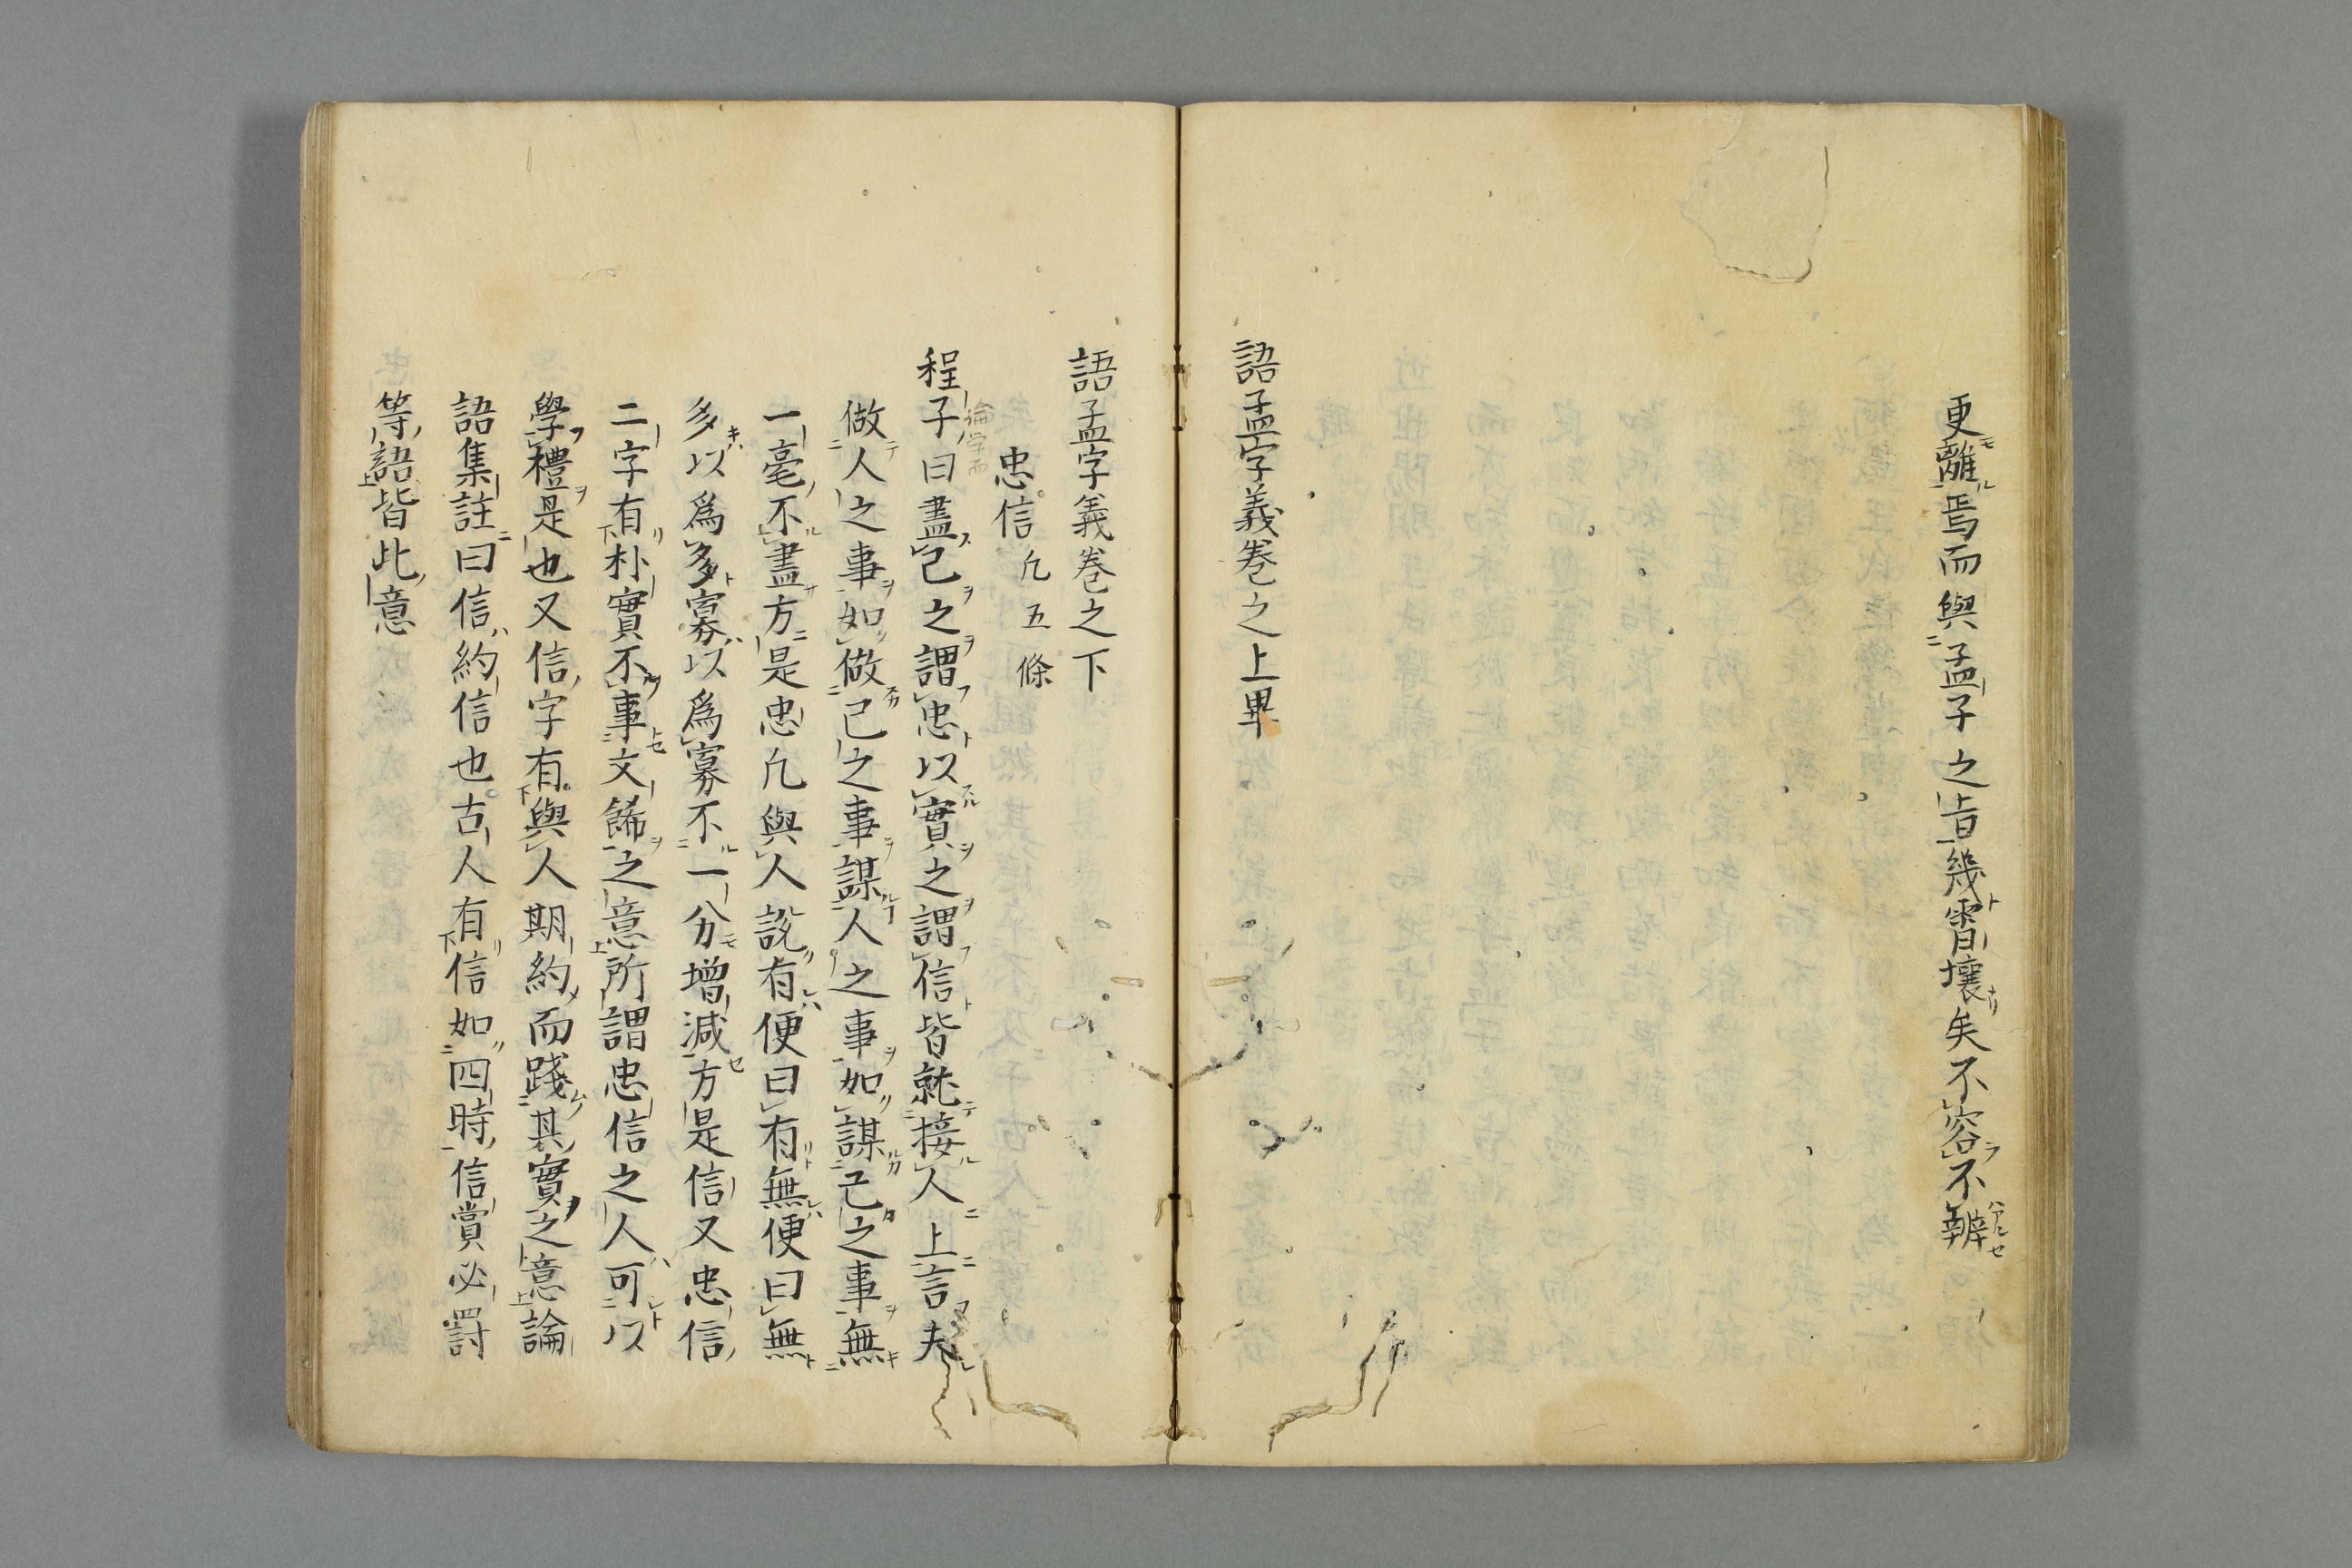 更離焉而與孟子之旨幾霄壤矣不容不辨
語孟字義巻之上畢
語孟字義巻之下
忠信 凢五條
程子曰盡己之謂忠以實之謂信皆就接人上言夫
論学而
做人之事如做己之事謀人之事如謀己之事無
一毫不盡方是忠凢與人説有便曰有無便曰無
多以爲多寡以爲寡不一分増減方是信又忠信
二字有朴實不事文餙之意所謂忠信之人可以
學禮是也又信字有與人期約而踐其實之意論
語集註曰信約信也古人有信如四時信賞必罰
等語皆此意